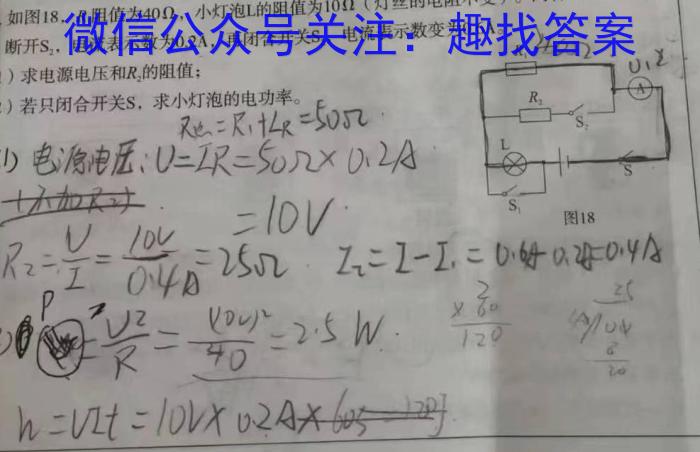 如图18, R₁阻值为40Ω, 小灯泡L的阻值为10Ω(灯丝的电阻不变)
断开S₂, 电流表示数为0.2A, 再闭合开关S 电流表示数变为
微信公众号关注：趣找答案
)求电源电压和R₂的阻值；
)若只闭合开关S，求小灯泡的电功率。
R总=R₁+L_R=50Ω
1) 电源电压:U=IR=50Ω×0.2A
=10V
R₂=U/I=10V/0.4A=25Ω I₂=I-I₁=0.6A-0.2A=0.4A
P=U²/R=(10V)²/40=2.5W.
W=UIt=10V×0.2A×60s=120J
2
×60
120
25
R₂
S₂
A
L
S
S₁
图18